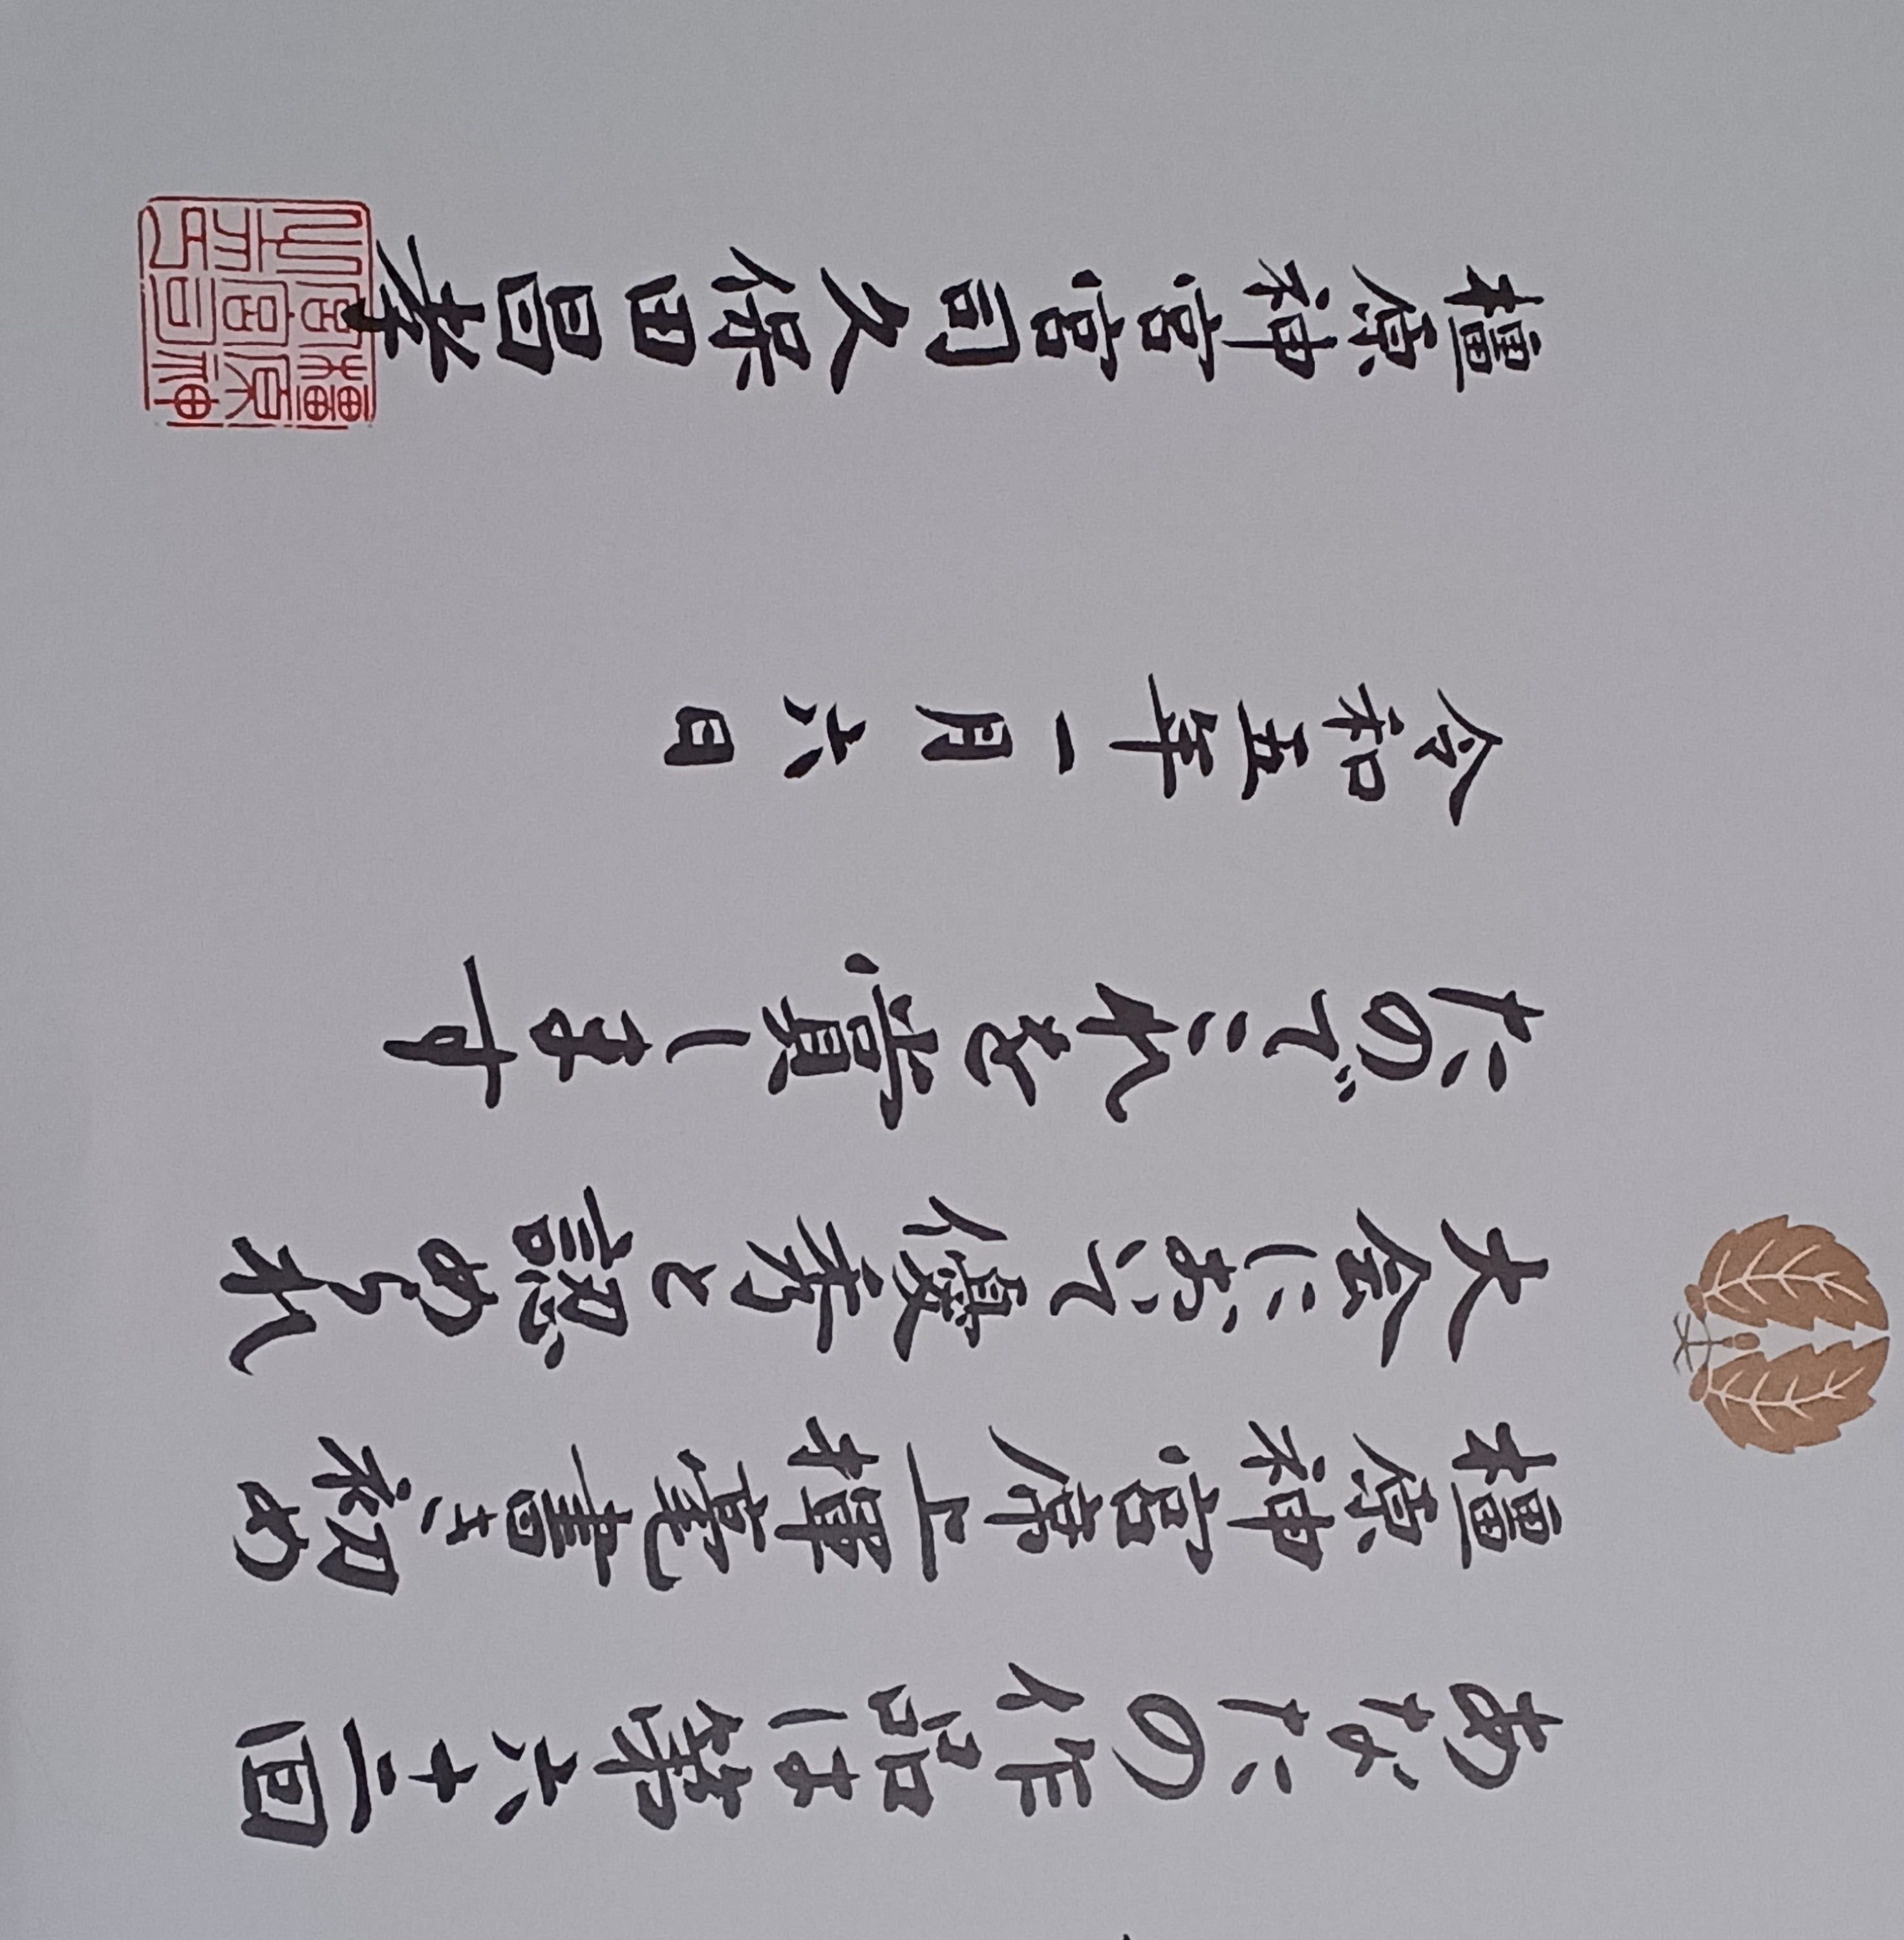 あなたの作品は第六十二回
橿原神宮席上揮毫書き初め
大会において優秀と認められ
たのでこれを賞します
令和五年一月六日
橿原神宮宮司久保田昌孝